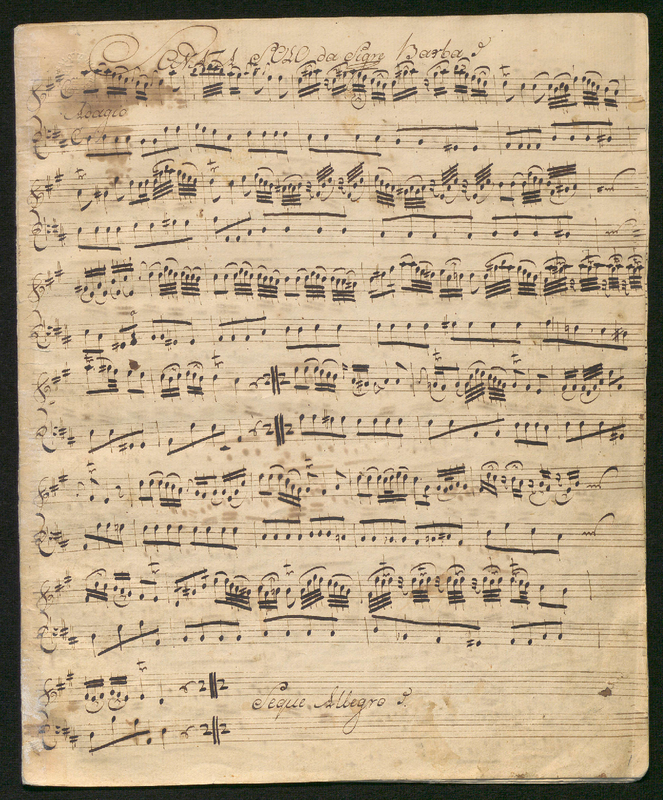 SONATA SOLO da Sigre Barba
Adagio
Seque Allegro